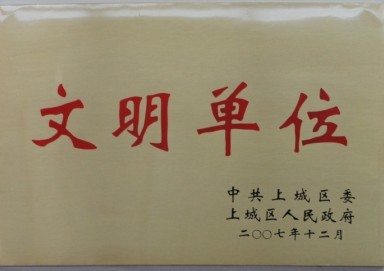 文明单位
中共上城区委
上城区人民政府
二〇〇七年十二月